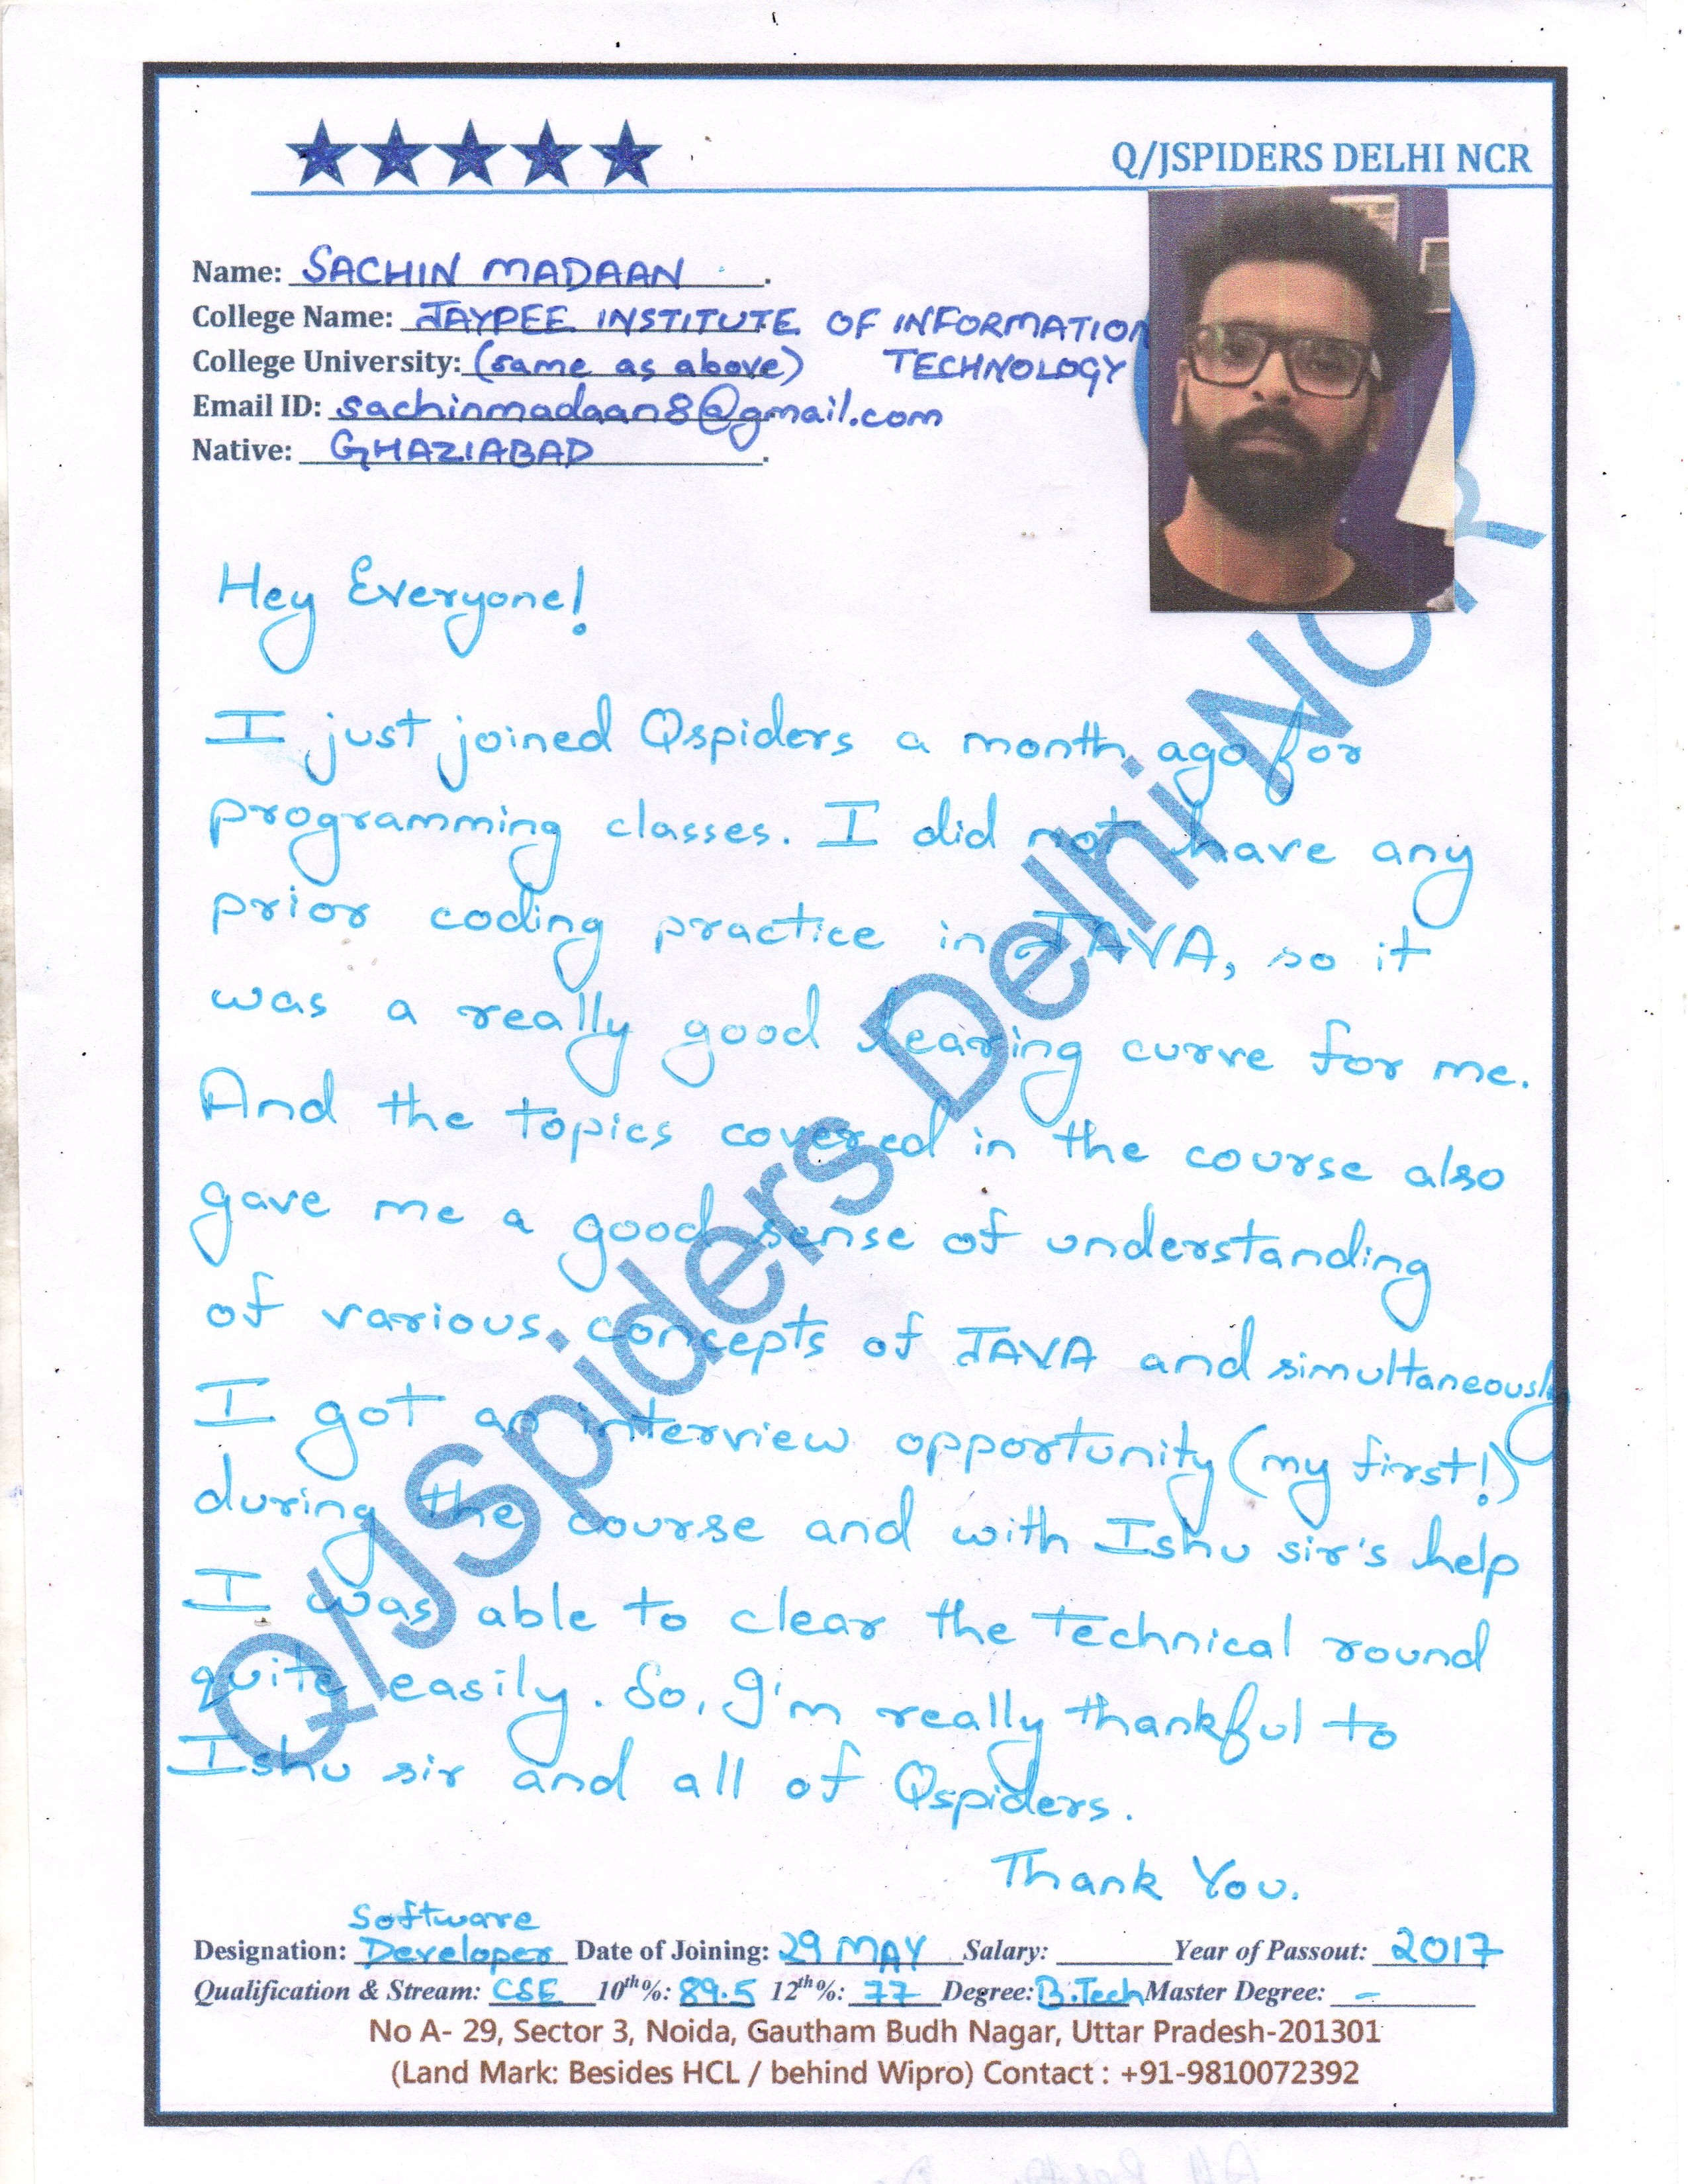 Q/JSPIDERS DELHI NCR
Name: SACHIN MADAAN.
College Name: JAYPEE INSTITUTE OF INFORMATION
College University: (same as above) TECHNOLOGY
Email ID: sachinmadaan8@gmail.com
Native: GHAZIABAD.
Hey Everyone!
I just joined Qspiders a month ago for
programming classes. I did not have any
prior coding practice in JAVA, so it
was a really good learing curve for me.
And the topics covered in the course also
gave me a good sense of understanding
of various concepts of JAVA and simultaneously
I got an interview opportunity (my first!)
during the course and with Ishu sir's help
I was able to clear the technical round
quite easily. So, I'm really thankful to
Ishu sir and all of Qspiders.
Thank You.
Q/JSpiders Delhi NCR
Software
Designation: Developer Date of Joining: 29 MAY Salary: Year of Passout: 2017
Qualification & Stream: CSE 10th%: 89.5 12th%: 77 Degree: B.Tech Master Degree: -
No A- 29, Sector 3, Noida, Gautham Budh Nagar, Uttar Pradesh-201301
(Land Mark: Besides HCL / behind Wipro) Contact : +91-9810072392